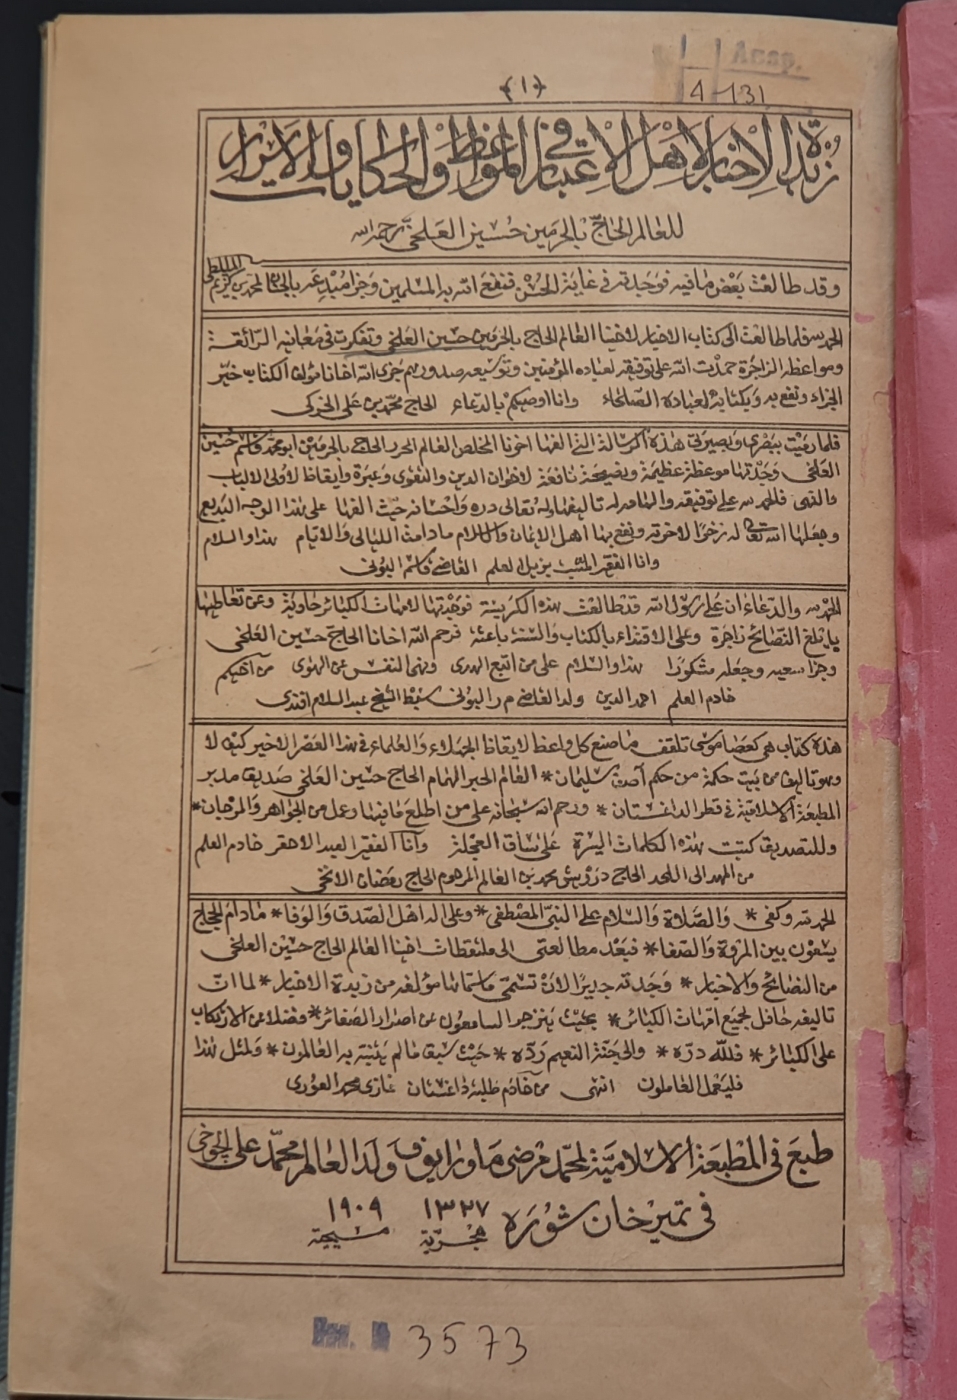 Апар.
4-131
﴿١﴾
زبدة الاخبار لاهل الاعتبار في المواعظ والحكايات والاسرار
للعالم الحاج بالحرمين حسين العلخي رحمه الله
وقد طالعت بعض ما فيه فوجدته في غاية الحسن فنفع الله به المسلمين وجزا مبدعه بالجنان محمد بن كريم
الحمد لله فلما طالعت الى كتاب الاخبار لاخينا العالم الحاج بالحرمين حسين العلخي وتفكرت في معانيه الرائقة
ومواعظه الزاجرة حمدت الله على توفيقه لعباده المؤمنين وتوسيعه صدورهم جزى الله اخانا مؤلف الكتاب خير
الجزاء ونفع به وبكتابه لعباده الصلحاء وانا اوصيكم بالدعاء الحاج محمد بن علي
فلما رميت ببصري وبصيرتي هذه الرسالة التي الفها اخونا المخلص العالم الحرر الحاج بالحرمين ابو محمد قاسم حسين
العلخي وجدتها موعظة عظيمة ونصيحة نافعة لاخوان الدين والتقوى وعبرة وايقاظا لاولى الالباب
والنهى فالحمد لله على توفيقه والهامه له تاليفها وله تعالى دره واحسانه حيث الفها على هذا الوجه البديع
وجعلها الله تعالى له زخرا لاخرته ونفع بها اهل الايمان والاسلام ما دامت الليالى والايام هذا والسلام
وانا الفقير المتشبث بذيل العلم القاضي قاسم
الحمد لله والدعاء ان على رسول الله قد طالعت هذه الكريسة فوجدتها لامهات الكبائر حاوية وعن تعاطيها
بابلغ النصائح زاجرة وعلى الاقتداء بالكتاب والسنة باعثة فرحم الله اخانا الحاج حسين العلخي
وجزا سعيه وجعله مشكورا هذا والسلام على من اتبع الهدى ونهى النفس عن الهوى من اخيكم
خادم العلم احمد الدين ولد القاضي سبط الشيخ عبد السلام افندى
هذه كتاب هي كعصا موسى تلقف ما صنع كل واعظ لايقاظ الجهلاء والعلماء في هذا العصر الاخير كيف لا
وهو تاليف من بيت حكمة من حكم آصف سليمان * العالم الحبر الهمام الحاج حسين العلخي صديق مدير
المطبعة الاسلامية في قطر الداغستان * ورحم الله سبحانه على من اطلع ما فيها وعمل من الجواهر والمرجان *
وللتصديق كتبت هذه الكلمات اليسرة على ساق العجلة وانا الفقير العبد الاحقر خادم العلم
من المهد الى اللحد الحاج درويش محمد بن العالم المرحوم الحاج رمضان
الحمد لله وكفى * والصلاة والسلام على النبي المصطفى * وعلى اله اهل الصدق والوفا * مادام الحجاج
يسعون بين المروة والصفا * فبعد مطالعتى الى ملتقطات اخينا العالم الحاج حسين العلخي
من النصائح والاخبار * وجدته جديرا لان تسمى ما سماها مؤلفه من زبدة الاخبار * لما ان
تاليفه حافل لجميع امهات الكبائر * بحيث ينزجر السامعون عن اصرار الصغائر * فضلا عن الارتكاب
على الكبائر * فلله دره * والى جنة النعيم رده * حيث سبق ما لم يتنبه به العالمون * ولمثل هذا
فليعمل العاملون انتهى من خادم طلبة داغستان غازى محمد العورى
طبع في المطبعة الاسلامية لمحمد مرضى ماورايوف ولد العالم محمد علي الچوخي
في تمير خان شوره ١٣٢٧ هجرية ١٩٠٩ مسيحية
3573